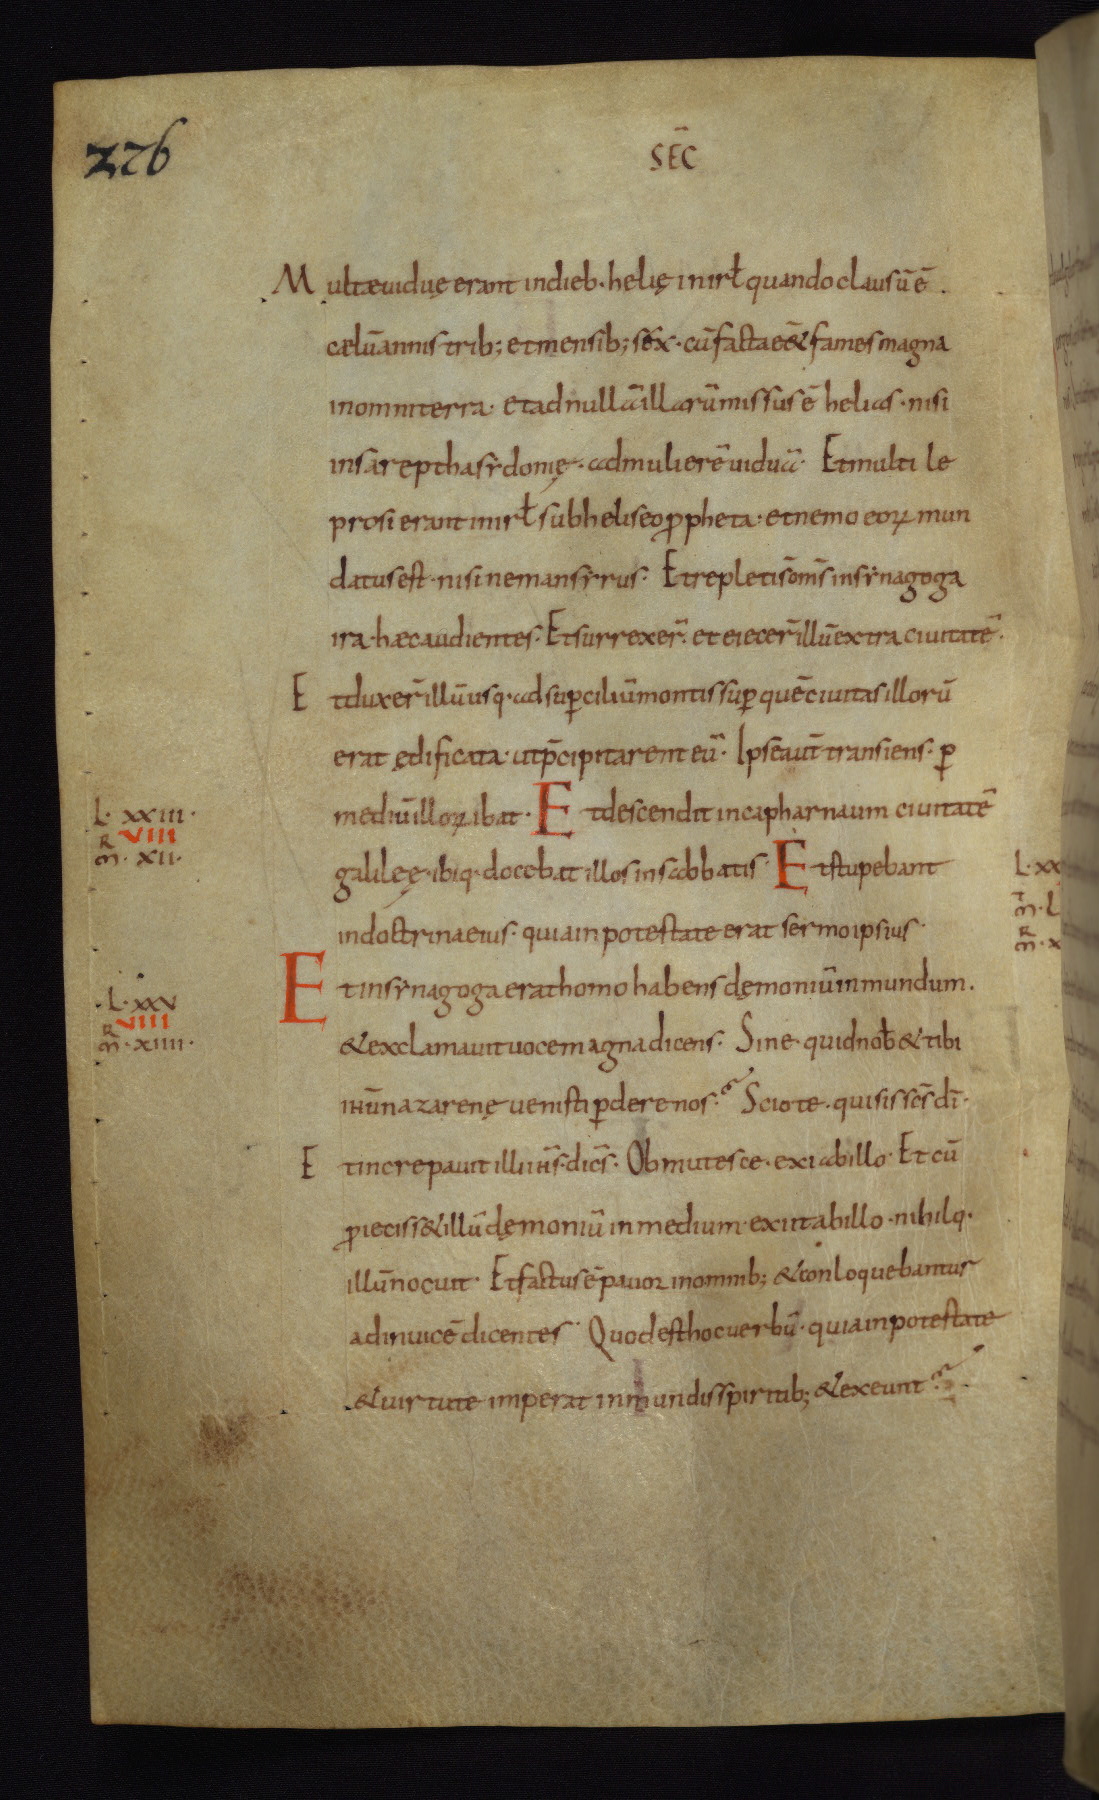 226
SEC̄
Multae uiduę erant in dieb· helię in irłˉ quando clausū ē·
cælū annis trib; et mensib; sex· cū facta eē& fames magna
in omni terra· et ad nullā illarū missus ē helias· nisi
in sareptha sydonię· ad mulierē uiduā· Et multi le
prosi erant in irłˉ sub heliseo ꝓpheta· et nemo eoꝝ mun
datus est· nisi neman syrus· Et repleti s̄ om̄s in synagoga
ira· haec audientes· Et surrexer̄· et eiecer̄ illū extra ciuitatē·
Et duxer̄ illū usq· ad suꝑciliū montis suꝑ quē ciuitas illorū
erat ędificata· ut p̄cipitarent eū· Ipse aut̄ transiens· ꝑ
mediū illoꝝ ibat· Et descendit in capharnaum ciuitatē
galileę· ibiq· docebat illos in sabbatis· Et stupebant
in doctrina eius· quia in potestate erat sermo ipsius·
Et in synagoga erat homo habens dęmoniū inmundum·
& exclamauit uoce magna dicens· Sine· quid nob̄ & tibi
ihū nazarenę uenisti ꝑdere nos· Scio te· quis is sc̄s dī·
Et increpauit illi ih̄s· dic̄s· Obmutesce· exi ab illo· Et cū
ꝓieciss& illū dęmoniū in medium· exiit ab illo· nihilq·
illū nocuit· Et factus ē pauor in omnib; & conloquebantur
ad inuicē dicentes· Quod est hoc uerbū· quia in potestate
& uirtute imperat inmundis spiritib; & exeunt·
L· XXIII·
R VIII
m̄· XII·
L· XXV
R VIIII
m̄· XIIII·
L· XX
m̄· L
R
m̄· X